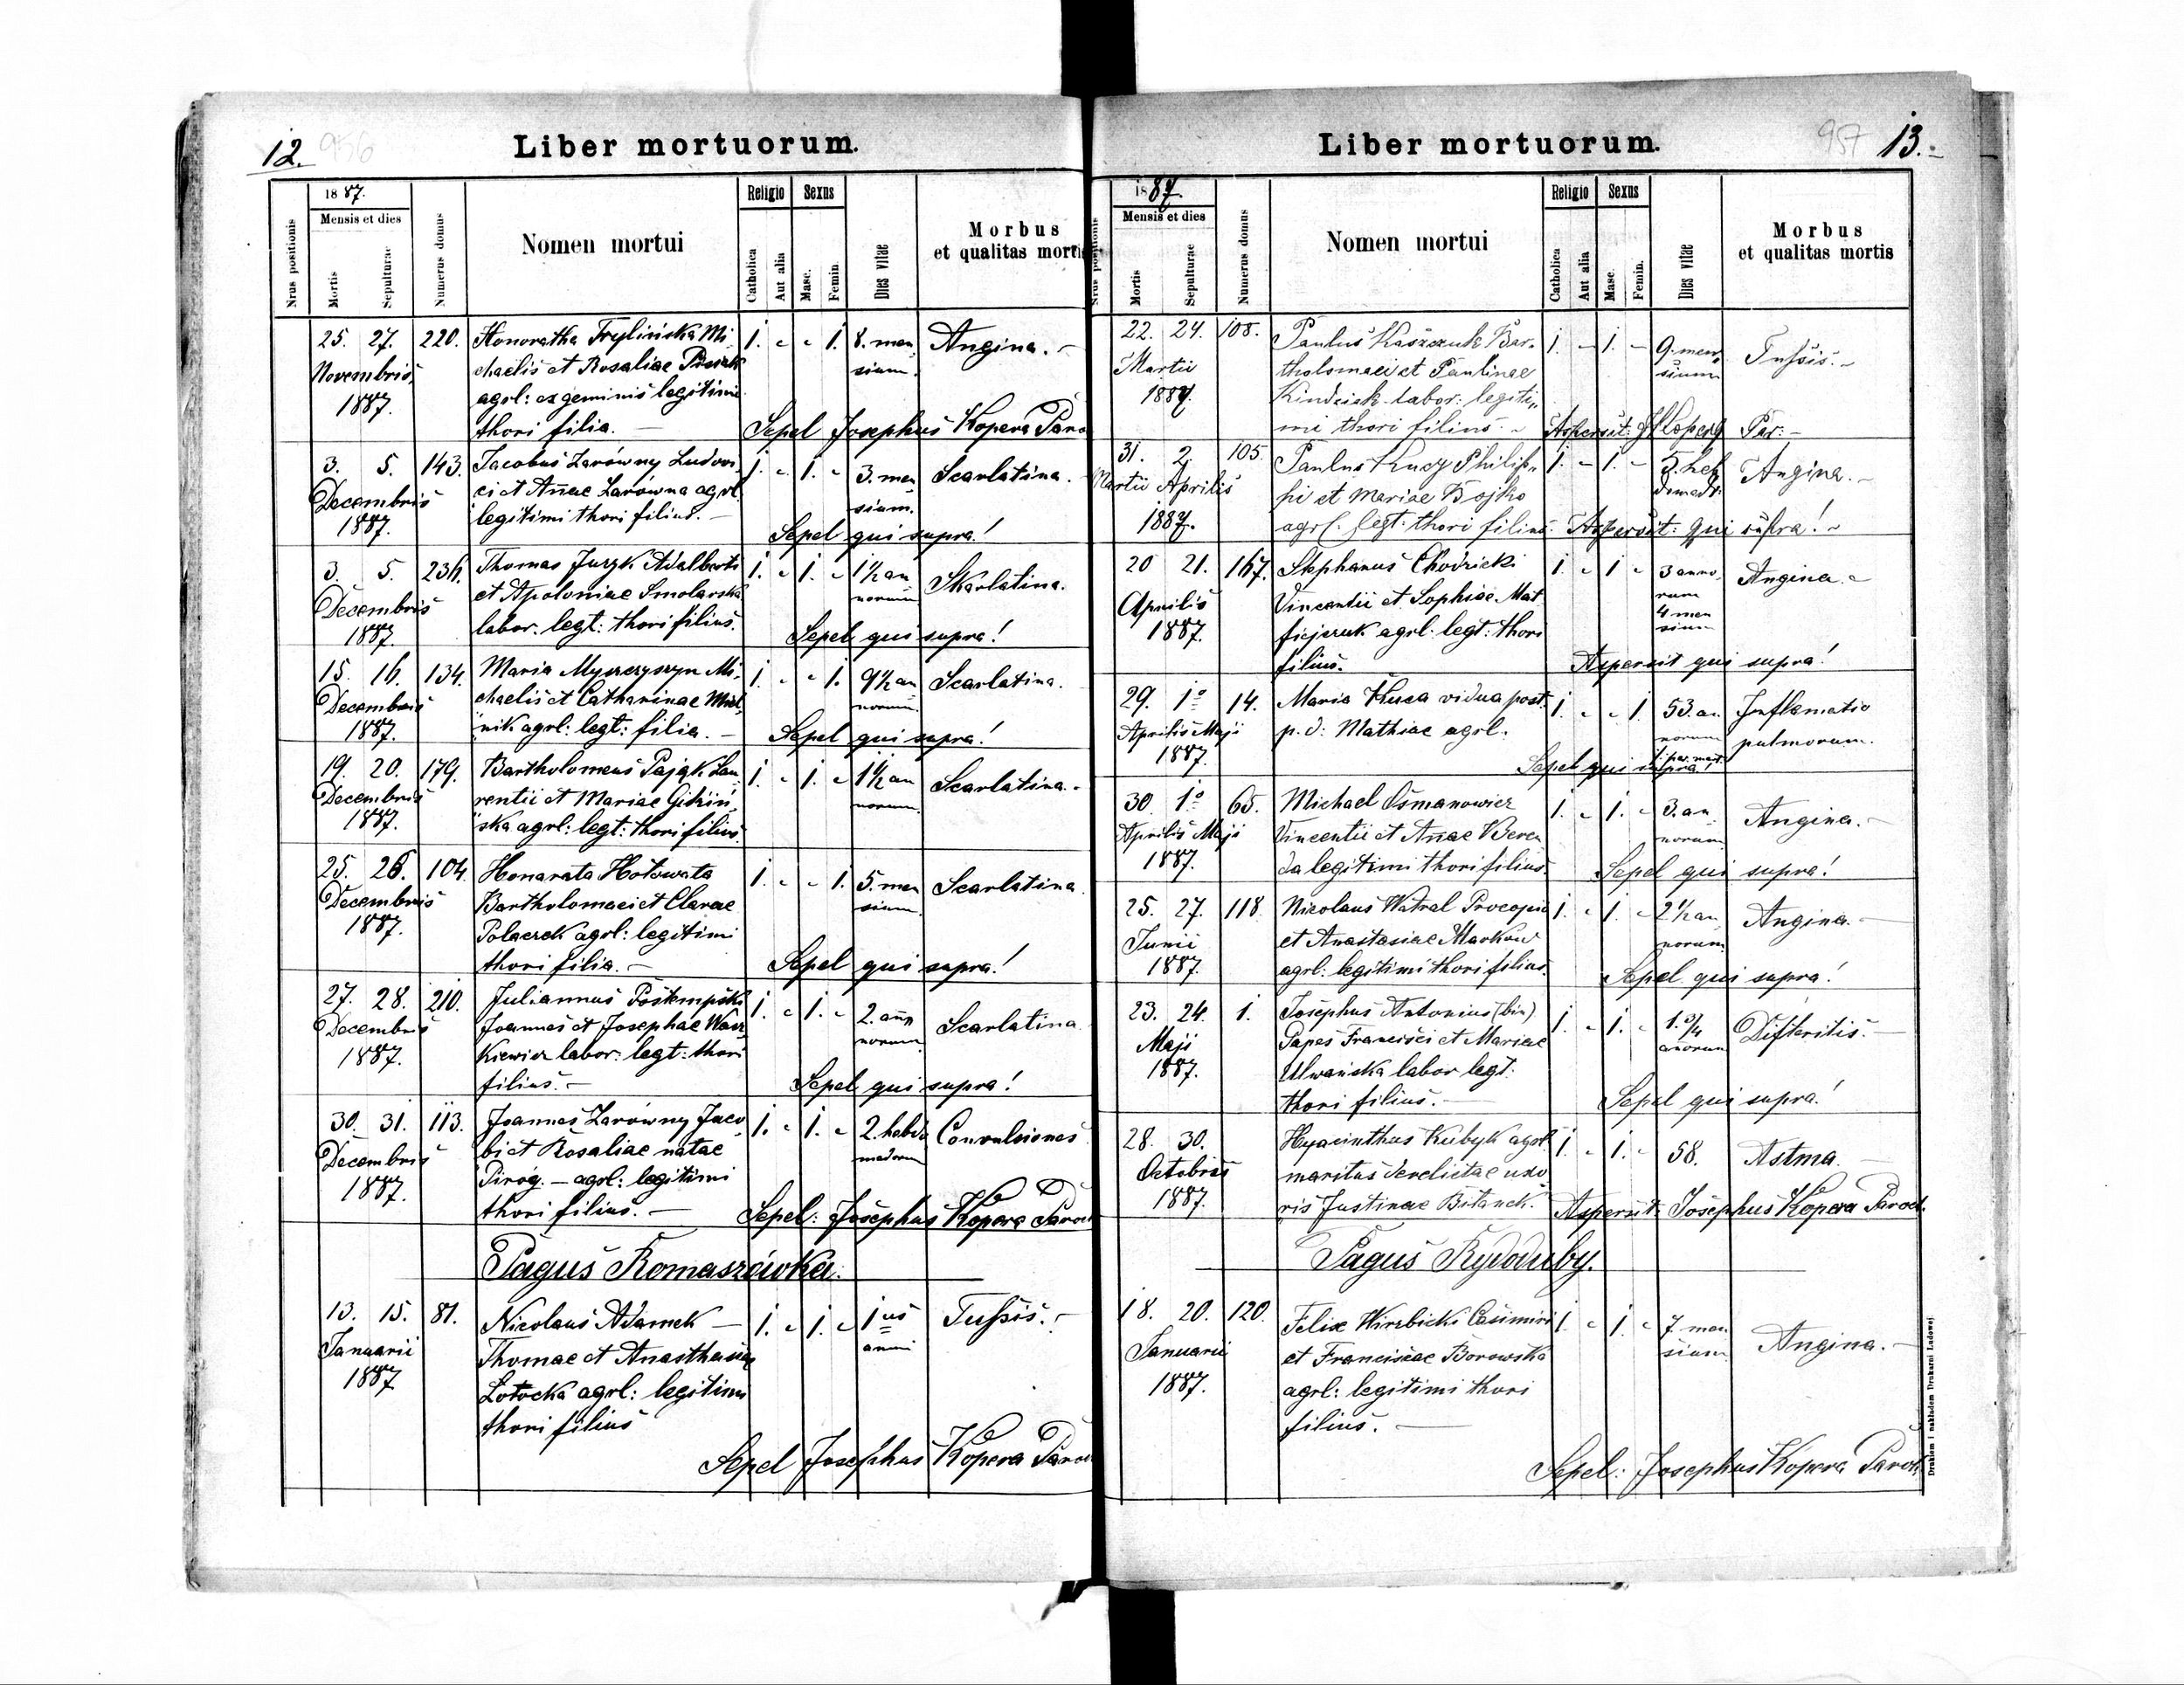 12. 956
Liber mortuorum.
Nrus positionis
1887.
Mensis et dies
Mortis
Sepulturae
Numerus domus
Nomen mortui
Religio
Catholica
Aut alia
Sexus
Masc.
Femin.
Dies vitae
Morbus
et qualitas mortis
25. 27. 220. Honoratha Frylińska Mi 1. - - 1. 8. men Angina. -
Novembris chaelis et Rosaliae sium.
1887. agrl: ex geminis legitimi
thori filia. — Sepel Josephus Kopera Paro
3. 5. 143. Jacobus Zarówny Ludovi 1. - 1. - 3. men Scarlatina.
Decembris ci et Annae Zarówna agrl. sium.
1887. legitimi thori filius. — Sepel qui supra!
3. 5. 236. Thomas Juzyk Adalberti 1. - 1. - 1½ an Skarlatina.
Decembris et Apoloniae Smolarska norum
1887. labor. legt: thori filius. Sepel qui supra!
15. 16. 134. Maria Myszczyszyn Mi 1. - - 1. 9½ an Scarlatina.
Decembris chaelis et Catharinae Miel norum.
1887. nik agrl: legt: filia. — Sepel qui supra!
19. 20. 179. Bartholomeus Pająk Lau 1. - 1. - 1½ an Scarlatina. -
Decembris rentii et Mariae norum.
1887. ska agrl: legt: thori filius
25. 26. 104. Honarata Hołowata 1. - - 1. 5. men Scarlatina.
Decembris Bartholomaei et Clarae sium.
1887. Polaczek agrl: legitimi
thori filia. — Sepel qui supra!
27. 28. 210. Juliannus Postempski 1. - 1. - 2. ann Scarlatina
Decembris Joannes et Josephae norum
1887. kiewicz labor: legt: thori
filius. — Sepel qui supra!
30. 31. 113. Joannes Zarówny Jaco 1. - 1. - 2. hebdo Convulsiones
Decembris bi et Rosaliae natae madorum
1887. Piróg. — agrl: legitimi
thori filius. — Sepel: Josephus Kopera Paroch
Pagus Romaszówka.
13. 15. 81. Nicolaus Adamek — 1. - 1. - 1us Tussis. -
Januarii Thomae et Anasthasiae anni
1887 Łotocka agrl: legitimi
thori filius
Sepel Josephus Kopera Paroc
957 13.
Liber mortuorum.
Nrus positionis
1887.
Mensis et dies
Mortis
Sepulturae
Numerus domus
Nomen mortui
Religio
Catholica
Aut alia
Sexus
Masc.
Femin.
Dies vitae
Morbus
et qualitas mortis
22. 24. 108. Paulus Kaszczuk Bar- 1. - 1. - 9. men Tussis. -
Martii tholomaei et Paulinae sium
1887. Kindziak labor: legiti„
mi thori filius. - Aspersit: JKopera Par: -
31. 2. 105. Paulus Kucy Philip„ 1. - 1. - 5. heb Angina. -
Martii Aprilis pi et Mariae Bojko domad:
1887. agrl. legt: thori filius Aspersit: qui supra! -
20 21. 167. Stephanus Chodzicki 1. - 1 - 3 anno Angina. -
Aprilis Vincentii et Sophiae Mat rum
1887. fiejczuk agrl: legt: thori 4 men
filius. sium
Aspersit qui supra!
29. 1o 14. Maria Kuca vidua post. 1. - - 1. 53. an Inflamatio
Aprilis Maji p. d: Mathiae agrl. norum pulmorum.
1887. Sepel qui supra!
30. 1o 65. Michael Osmanowicz 1. - 1. - 3. an Angina. -
Aprilis Maji Vincentii et Annae Beren norum
1887. da legitimi thori filius. Sepel qui supra!
25. 27. 118. Nicolaus Watral Procopii 1. - 1. - 2½ an Angina. -
Junii et Anastasiae Markow norum
1887. agrl: legitimi thori filius. Sepel qui supra!
23. 24. 1. Josephus Antonius (bin) 1. - 1. - 1. 3/4 Difteritis. —
Maji Papes Francisci et Mariae anorum
1887. Ulwańska labor legt:
thori filius. — Sepel qui supra!
28. 30. Hyacinthus Kubyk agrl. 1. - 1. - 58. Astma. —
Octobris maritus derelictae uxo
1887. ris Justinae Bilanek. Aspersit: Josephus Kopera Paroch.
Pagus Rydoduby.
18. 20. 120. Felix Wirzbicki Casimiri 1. - 1. - 7. men Angina. -
Januarii et Franciscae Borowska sium
1887. agrl: legitimi thori
filius. —
Sepel: Josephus Kopera Paroch.
Drukiem i nakładem Drukarni Ludowej